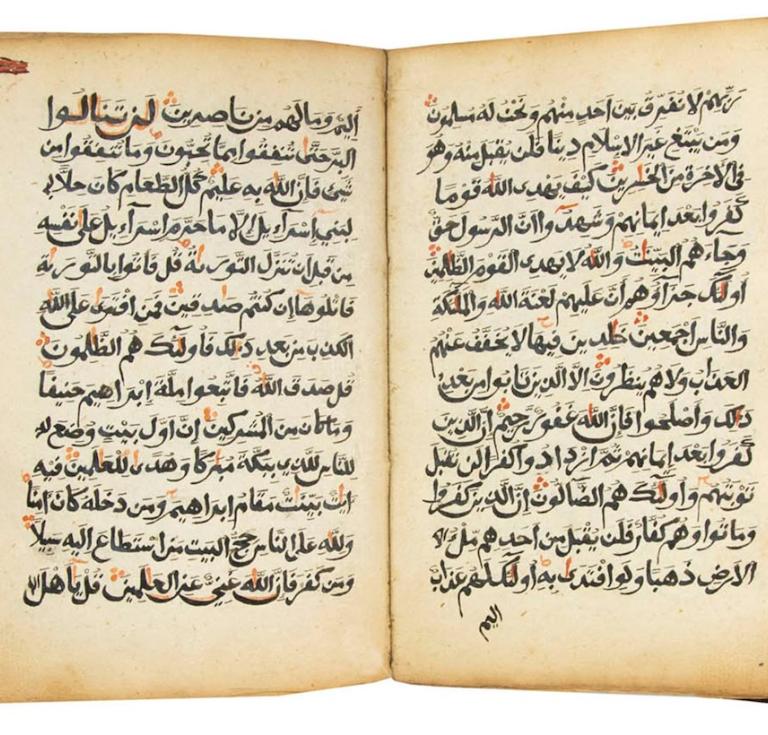 ربهم لا نفرق بين احد منهم ونحن له مسلمون
ومن يبتغ غير الاسلام دينا فلن يقبل منه وهو
في الاخرة من الخسرين كيف يهدي الله قوما
كفروا بعد ايمانهم وشهدوا ان الرسول حق
وجاءهم البينت والله لا يهدي القوم الظلمين
اولئك جزاؤهم ان عليهم لعنة الله والملئكة
والناس اجمعين خلدين فيها لا يخفف عنهم
العذاب ولا هم ينظرون الا الذين تابوا من بعد
ذلك واصلحوا فان الله غفور رحيم ان الذين
كفروا بعد ايمانهم ثم ازدادوا كفرا لن تقبل
توبتهم واولئك هم الضالون ان الذين كفروا
وماتوا وهم كفار فلن يقبل من احدهم ملء الا
الارض ذهبا ولو افتدى به اولئك لهم عذاب
اليم
اليم وما لهم من ناصرين لن تنالوا
البر حتى تنفقوا مما تحبون وما تنفقوا من
شيء فان الله به عليم كل الطعام كان حلا
لبني اسراءيل الا ما حرم اسراءيل على نفسه
من قبل ان تنزل التورىة قل فاتوا بالتورىة
فاتلوها ان كنتم صدقين فمن افترى على الله
الكذب من بعد ذلك فاولئك هم الظلمون
قل صدق الله فاتبعوا ملة ابراهيم حنيفا
وما كان من المشركين ان اول بيت وضع
للناس للذي ببكة مبركا وهدى للعلمين فيه
ايت بينت مقام ابراهيم ومن دخله كان امنا
ولله على الناس حج البيت من استطاع اليه سبيلا
ومن كفر فان الله غني عن العلمين قل ياهل ال